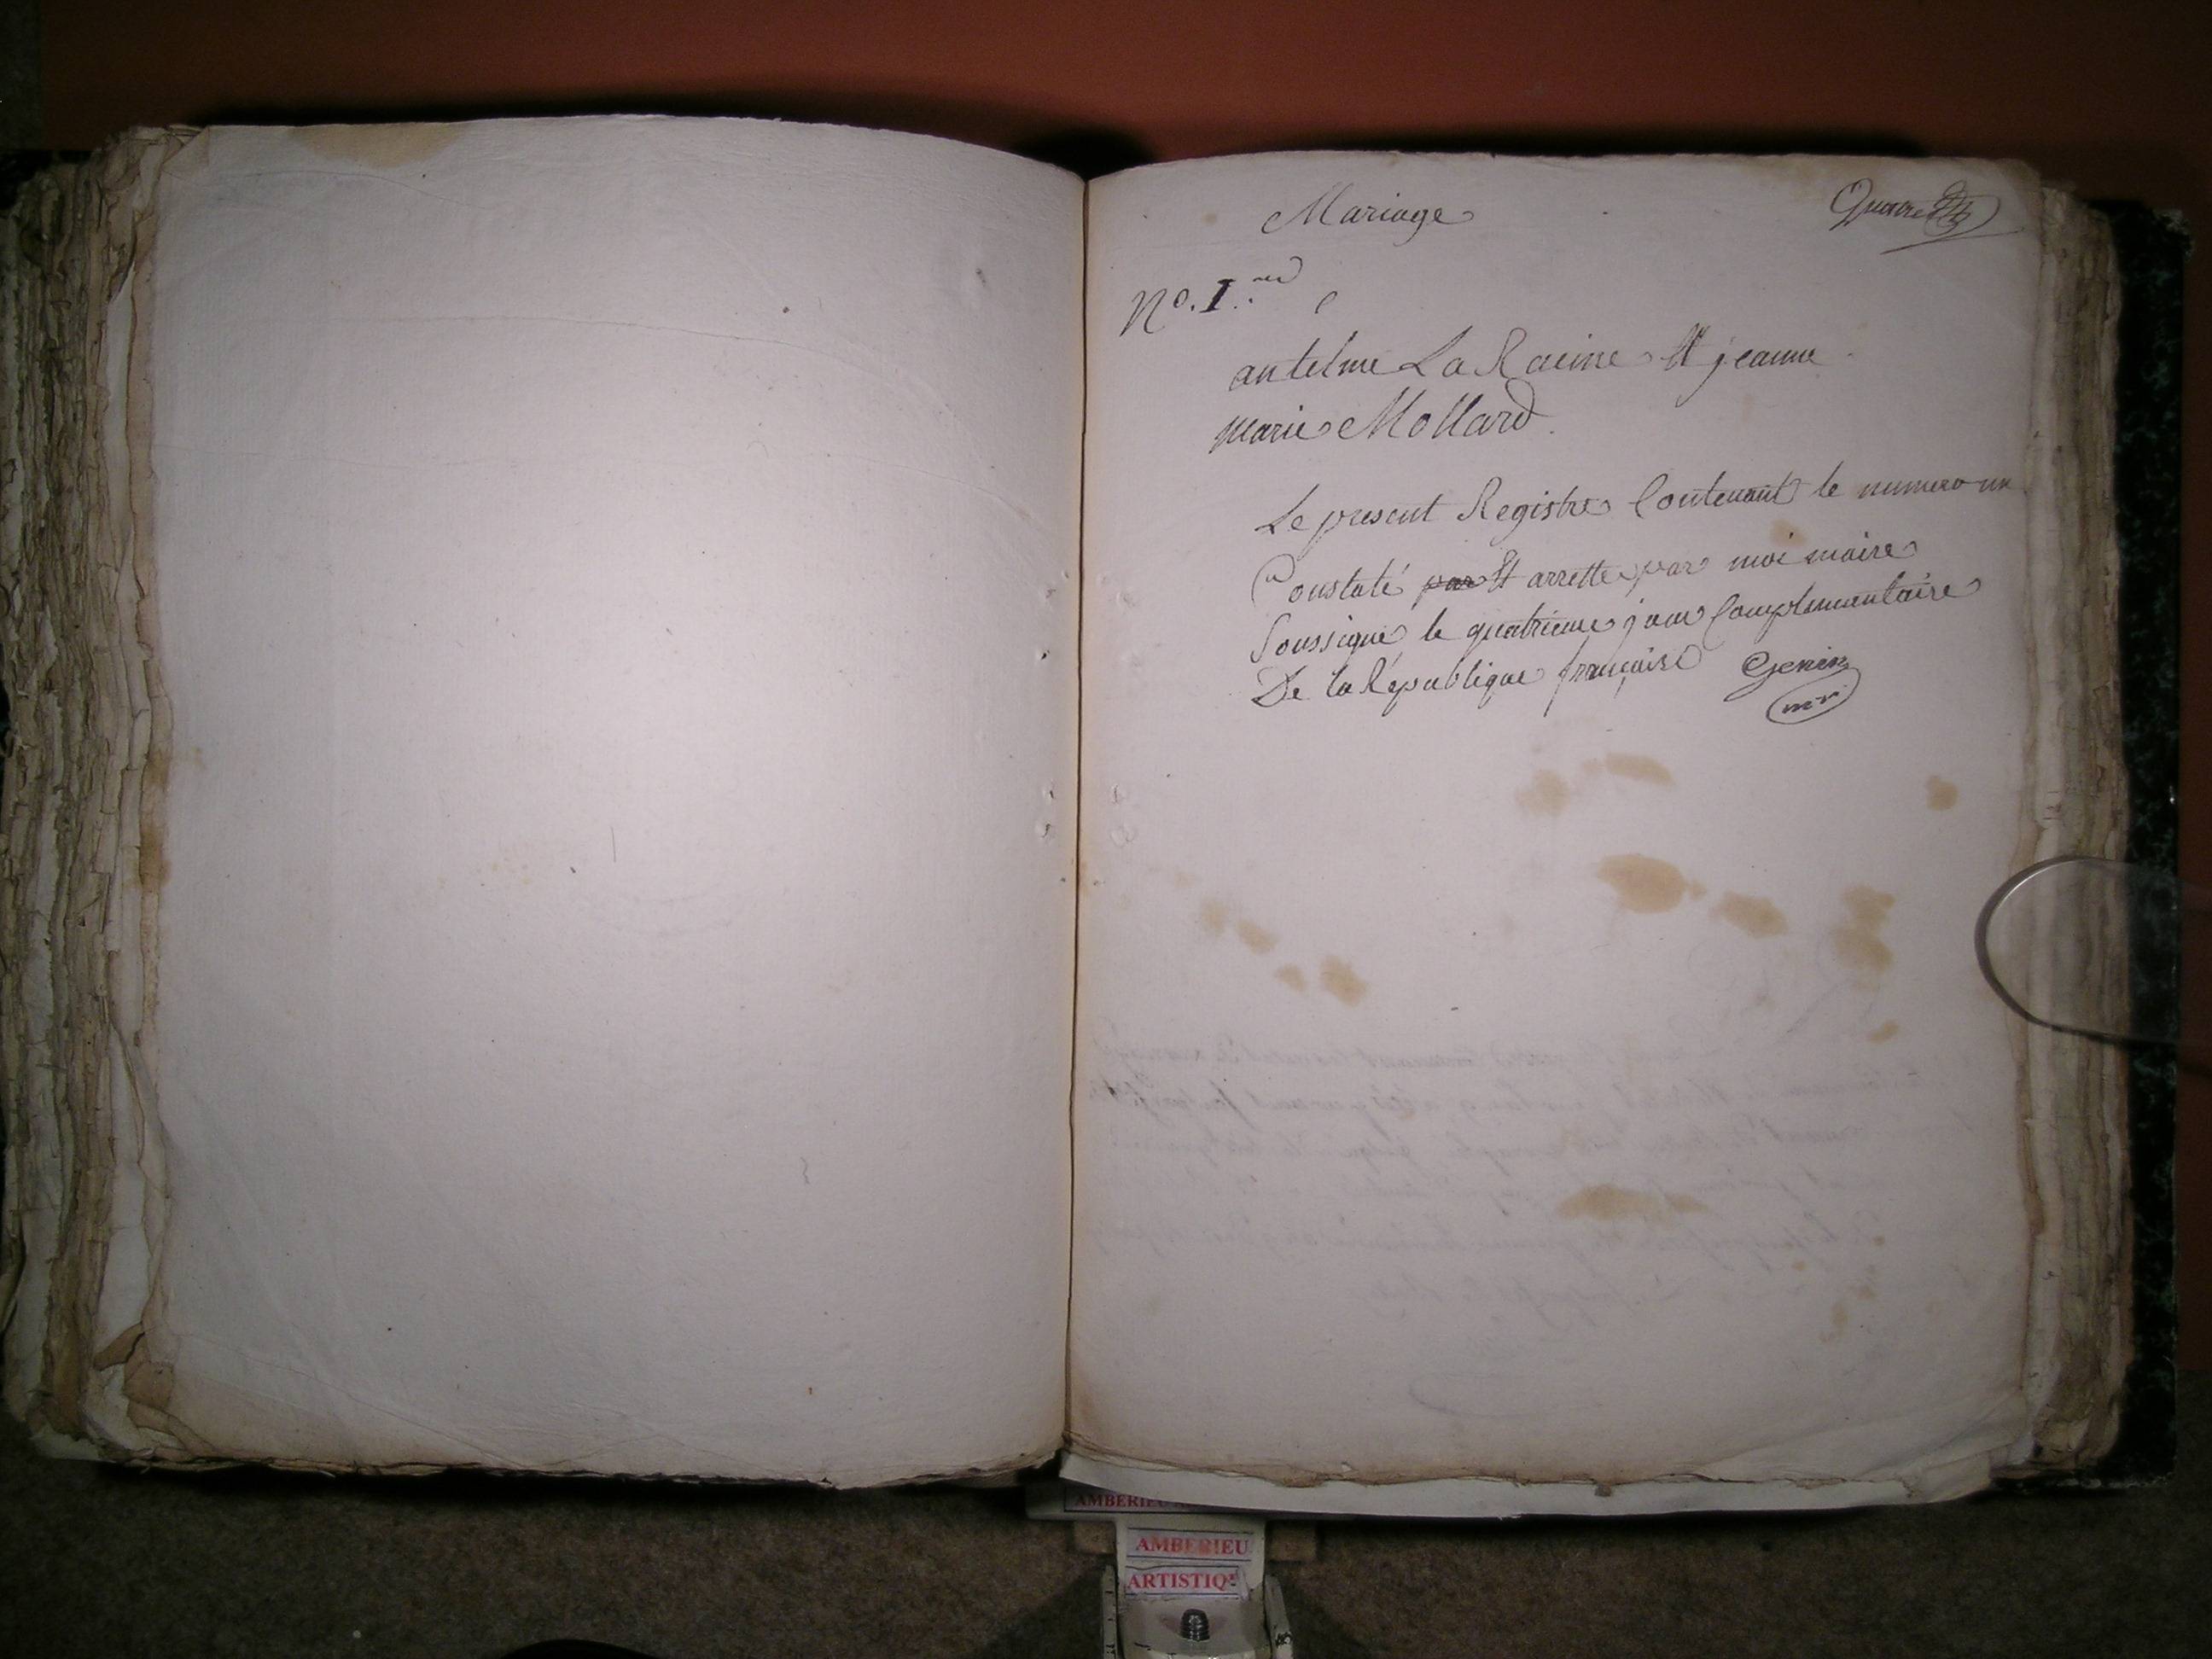 Mariage
Quatre
No. 1.er
antelme La Racine Et jeanne
marie Mollard.
Le present Registre Contenant le numero un
Constaté par Et arretté par moi maire
Soussigné le quatrieme jour Complementaire
De la République française Genin
mr
AMBERIEU
AMBERIEU
ARTISTIQ